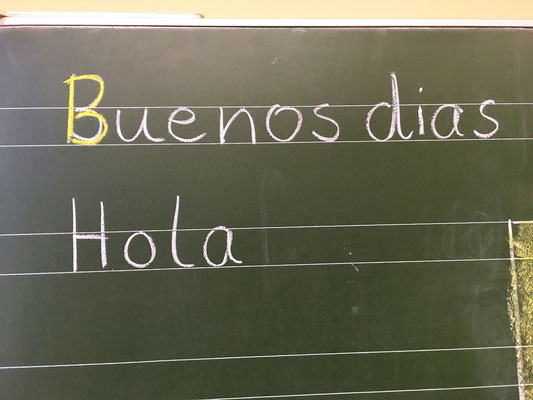 Buenos dias
Hola